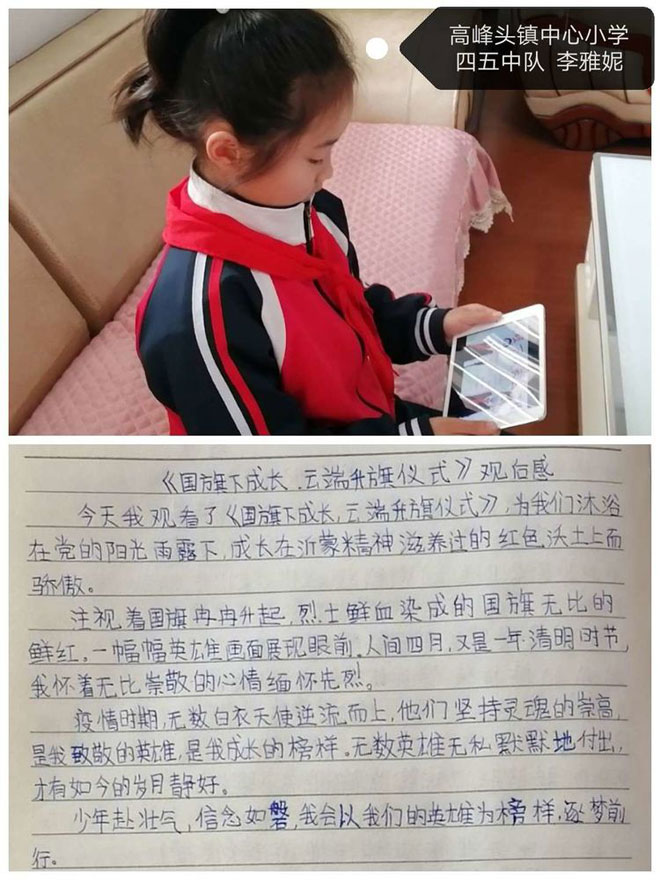 高峰头镇中心小学
四五中队 李雅妮
《国旗下成长，云端升旗仪式》观后感
今天我观看了《国旗下成长，云端升旗仪式》，为我们沐浴
在党的阳光雨露下，成长在沂蒙精神滋养过的红色沃土上而
骄傲。
注视着国旗冉冉升起，烈士鲜血染成的国旗无比的
鲜红，一幅幅英雄画面展现眼前。人间四月，又是一年清明时节，
我怀着无比崇敬的心情缅怀先烈。
疫情时期，无数白衣天使逆流而上，他们坚持灵魂的崇高，
是我致敬的英雄，是我成长的榜样。无数英雄无私默默地付出，
才有如今的岁月静好。
少年赴壮气，信念如磐，我会以我们的英雄为榜样，逐梦前
行。